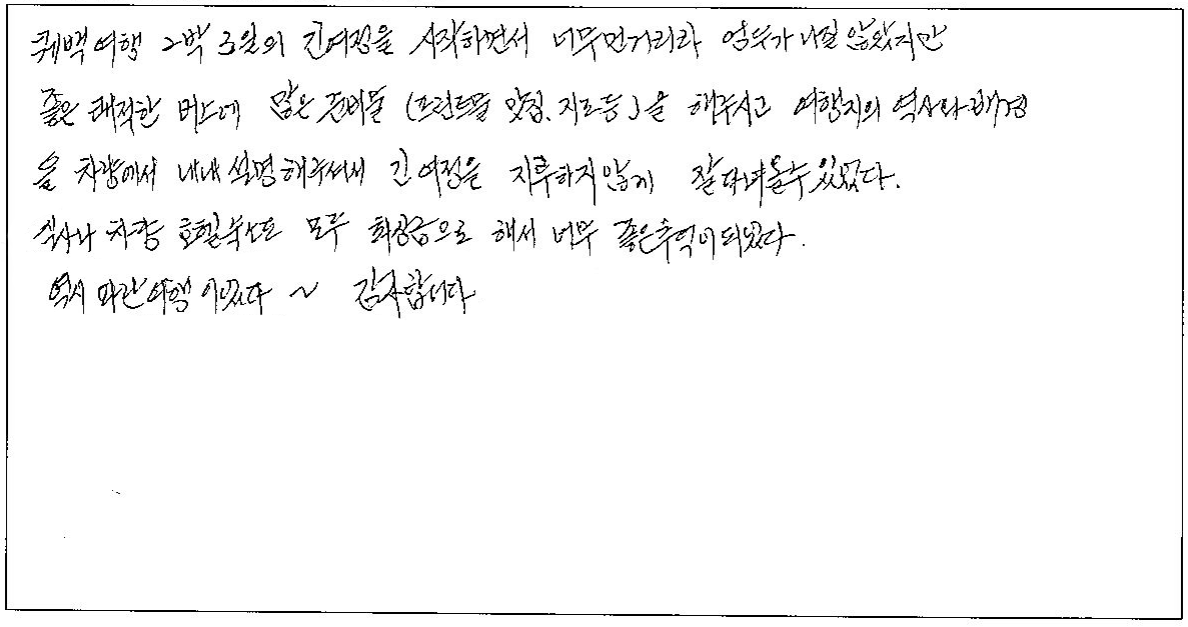 퀘백여행 2박 3일의 긴여정을 시작하면서 너무먼거리라 엄두가 나질 않았지만
좋은 쾌적한 버스에 많은 준비물 (프린트물 맛집, 지도등)을 해주시고 여행지의 역사와 배경
을 차량에서 내내 설명해주셔서 긴 여정을 지루하지않게 잘다녀올수있었다.
식사나 차량 호텔 모두 최상급으로 해서 너무 좋은추억이되었다.
역시 파란여행이었다 ~ 감사합니다